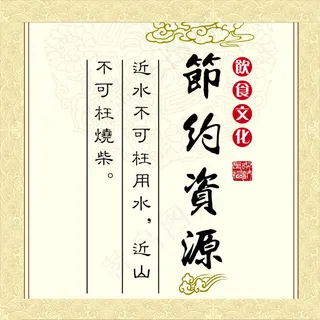 飲食文化
節约資源
近水不可枉用水，近山
不可枉燒柴。